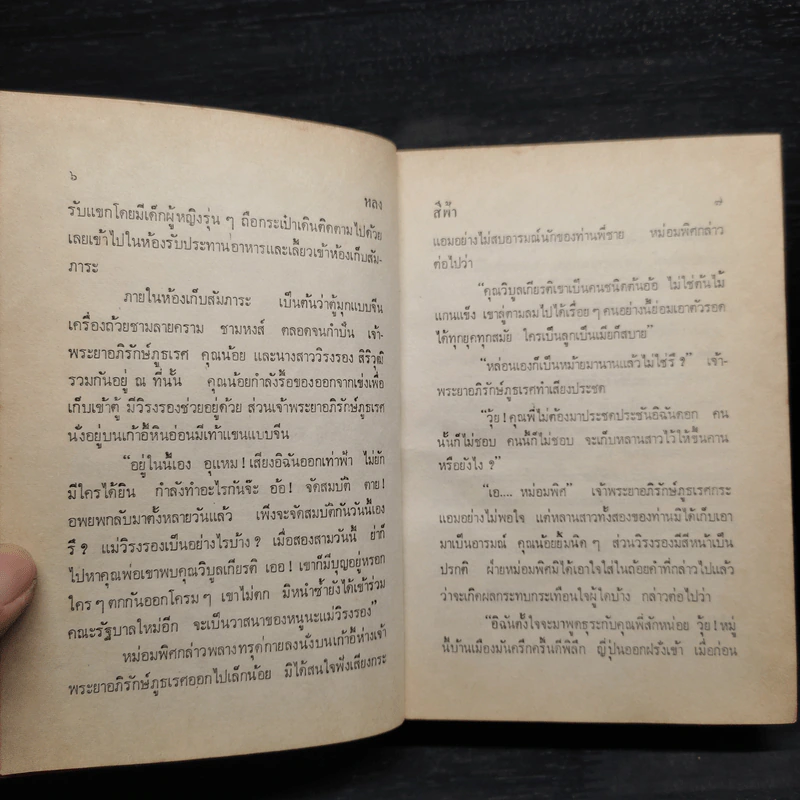 ๖
หลง
รับแขกโดยมีเด็กผู้หญิงรุ่น ๆ ถือกระเป๋าเดินติดตามไปด้วย
เลยเข้าไปในห้องรับประทานอาหารและเลี้ยวเข้าห้องเก็บสัม-
ภาระ
ภายในห้องเก็บสัมภาระ เป็นต้นว่าตู้มุกแบบจีน
เครื่องถ้วยชามลายคราม ชามหงส์ ตลอดจนกำปั่น เจ้า-
พระยาอภิรักษ์ภูธเรศ คุณน้อย และนางสาววิรงรอง สิริวุฒิ
รวมกันอยู่ ณ ที่นั้น คุณน้อยกำลังรื้อของออกจากเข่งเพื่อ
เก็บเข้าตู้ มีวิรงรองช่วยอยู่ด้วย ส่วนเจ้าพระยาอภิรักษ์ภูธเรศ
นั่งอยู่บนเก้าอี้หินอ่อนมีเท้าแขนแบบจีน
“อยู่ในนี้เอง อุแหม ! เสียงอิฉันออกเท่าฟ้า ไม่ยัก
มีใครได้ยิน กำลังทำอะไรกันจ๊ะ อ้อ ! จัดสมบัติ ตาย !
อพยพกลับมาตั้งหลายวันแล้ว เพิ่งจะจัดสมบัติกันวันนี้เอง
รึ ? แม่วิรงรองเป็นอย่างไรบ้าง ? เมื่อสองสามวันนี้ ย่าก็
ไปหาคุณพ่อเขาพบคุณวิบูลเกียรติ เออ ! เขาก็มีบุญอยู่หรอก
ใคร ๆ ตกกันออกโครม ๆ เขาไม่ตก มิหนำซ้ำยังได้เข้าร่วม
คณะรัฐบาลใหม่อีก จะเป็นวาสนาของหนูนะแม่วิรงรอง”
หม่อมพิศกล่าวพลางทรุดกายลงนั่งบนเก้าอี้ห่างเจ้า
พระยาอภิรักษ์ภูธเรศออกไปเล็กน้อย มิได้สนใจฟังเสียงกระ
สีฟ้า
๗
แอมอย่างไม่สบอารมณ์นักของท่านพี่ชาย หม่อมพิศกล่าว
ต่อไปว่า
“คุณวิบูลเกียรติเขาเป็นคนชนิดต้นอ้อ ไม่ใช่ต้นไม้
แกนแข็ง เขาลู่ตามลมไปได้เรื่อย ๆ คนอย่างนี้ย่อมเอาตัวรอด
ได้ทุกยุคทุกสมัย ใครเป็นลูกเป็นเมียก็สบาย”
“หล่อนเองก็เป็นหม้ายมานานแล้วไม่ใช่รึ ?” เจ้า-
พระยาอภิรักษ์ภูธเรศทำเสียงประชด
“วุ้ย ! คุณพี่ไม่ต้องมาประชดประชันอิฉันดอก คน
นั้นก็ไม่ชอบ คนนี้ก็ไม่ชอบ จะเก็บหลานสาวไว้ให้ขึ้นคาน
หรือยังไง ?
“เอ.... หม่อมพิศ” เจ้าพระยาอภิรักษ์ภูธเรศกระ
แอมอย่างไม่พอใจ แต่หลานสาวทั้งสองของท่านมิได้เก็บเอา
มาเป็นอารมณ์ คุณน้อยยิ้มนิด ๆ ส่วนวิรงรองมีสีหน้าเป็น
ปรกติ ฝ่ายหม่อมพิศมิได้เอาใจใส่ในถ้อยคำที่กล่าวไปแล้ว
ว่าจะเกิดผลกระทบกระเทือนใจผู้ใดบ้าง กล่าวต่อไปว่า
“อิฉันตั้งใจจะมาพูดธุระกับคุณพี่สักหน่อย วุ้ย ! หมู่
นี้บ้านเมืองมันครึกครื้นก็พิลึก ญี่ปุ่นออกฝรั่งเข้า เมื่อก่อน